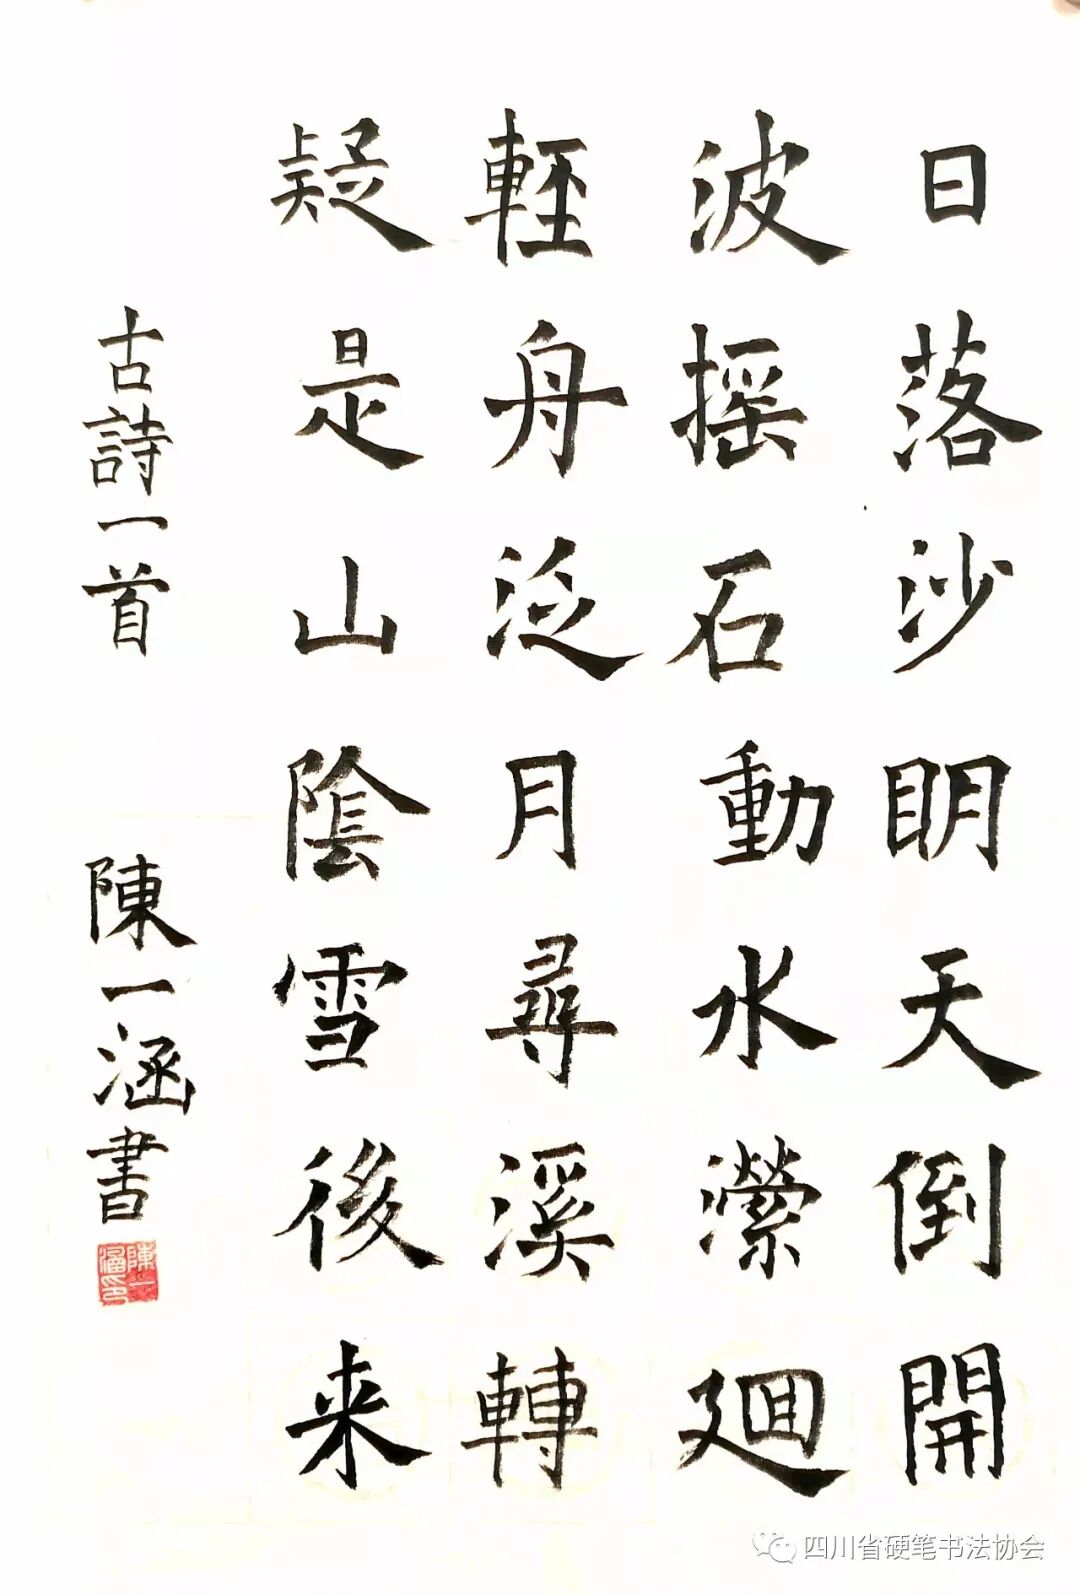 日落沙眀天倒開
波摇石動水濴廻
輊舟泛月尋溪轉
疑是山陰雪後来
古詩一首
陳一涵書
陳一涵印
四川省硬笔书法协会